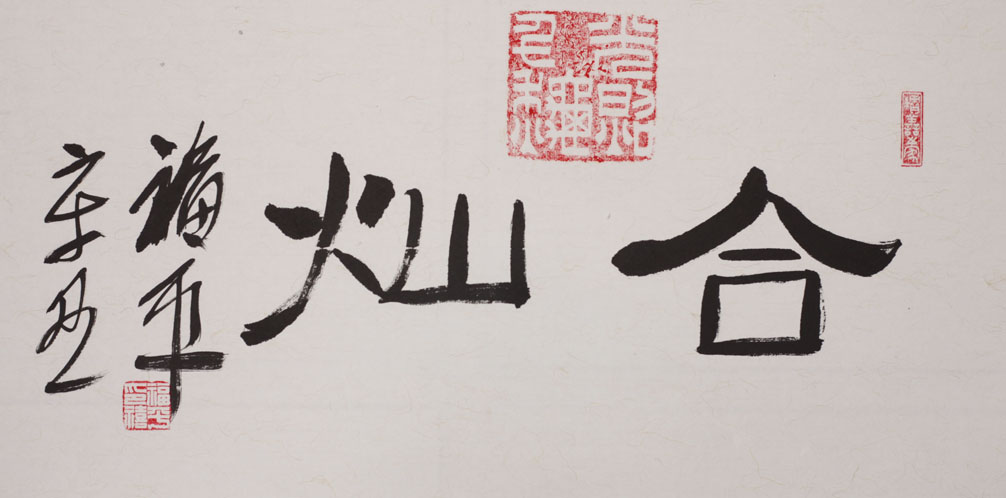 合灿
福平
辛丑